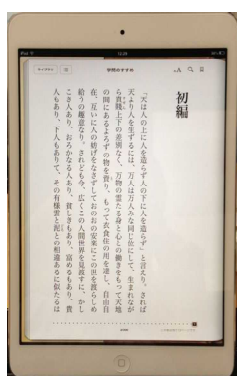 iPad
15:28
ライブラリ
学問のすすめ
ᴀA
初編
「天は人の上に人を造らず人の下に人を造らず」と言えり。されば
天より人を生ずるには、万人は万人みな同じ位にして、生まれなが
ら貴賤上下の差別なく、万物の霊たる身と心との働きをもって天地
の間にあるよろずの物を資り、もって衣食住の用を達し、自由自
在、互いに人の妨げをなさずしておのおの安楽にこの世を渡らしめ
給うの趣意なり。されども今、広くこの人間世界を見渡すに、かし
こき人あり、おろかなる人あり、貧しきもあり、富めるもあり、貴
人もあり、下人もありて、その有様雲と泥との相違あるに似たるは